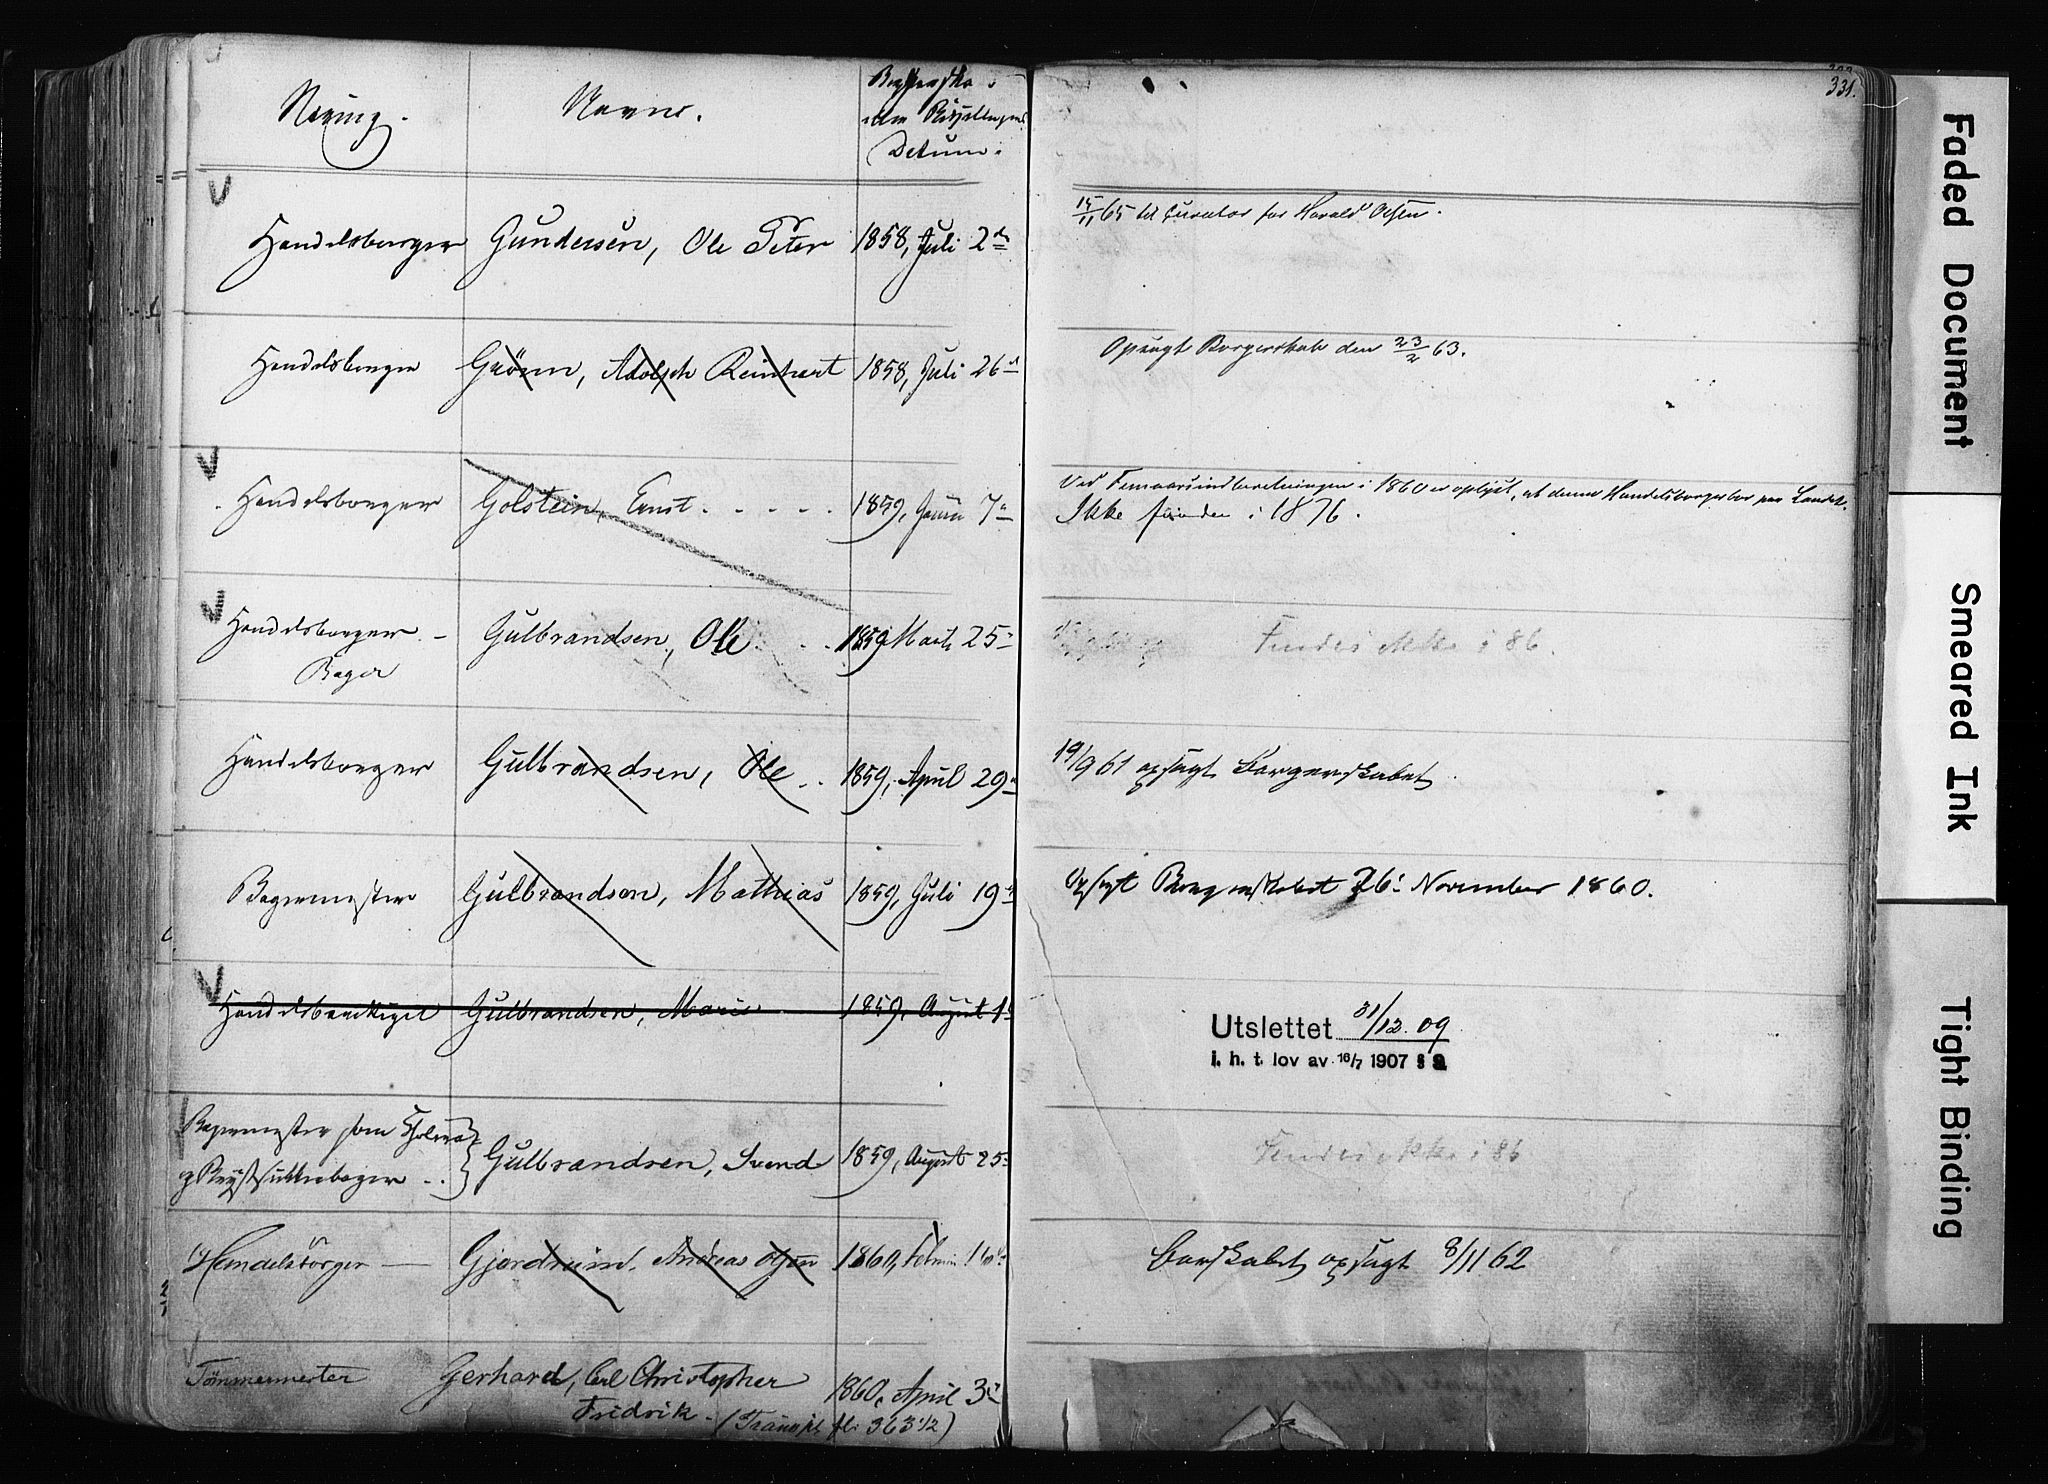 331.
Næring. Navne. Borgerska
Datum.
Handelsborger Gundersen, Ole Peter 1858, Juli 2
15/11 65 til Curator for Harald Olsen.
Handelsborger Grönn, Adolph Reinhart 1858, Juli 26
Opsagt Borgerskab den 23/2 63.
Handelsborger Golstein, Ernst 1859, 7
Ved Femaarsindberetningen i 1860 er oplyst, at denne Handelsborger bor paa Landet.
Ikke funden i 1876.
Handelsborger - Gulbrandsen, Ole 1859 Marts 25
Bager
Findes ikke i 86.
Handelsborger Gulbrandsen, Ole 1859, April 29
19/9 61 opsagt Borgerskabet
Bagermester Gulbrandsen, Mathias 1859, Juli 19
Opsagt Borgerskabet 26 November 1860.
Gulbrandsen, Marie 1859, August 1
Utslettet 31/12.09
i. h. t. lov av 16/7 1907 §
Bagermester som
Gulbrandsen, Svend 1859, August 25
Findes ikke i 86
Handelsborger Gjerdrum, Andreas Olsen 1860,
Borskabet opsagt 8/11 62
Tömmermester Gerhard, Carl Christopher 1860, April 3
Fredrik - (Transp. fl. 363 1/2)
Faded Document
Smeared Ink
Tight Binding